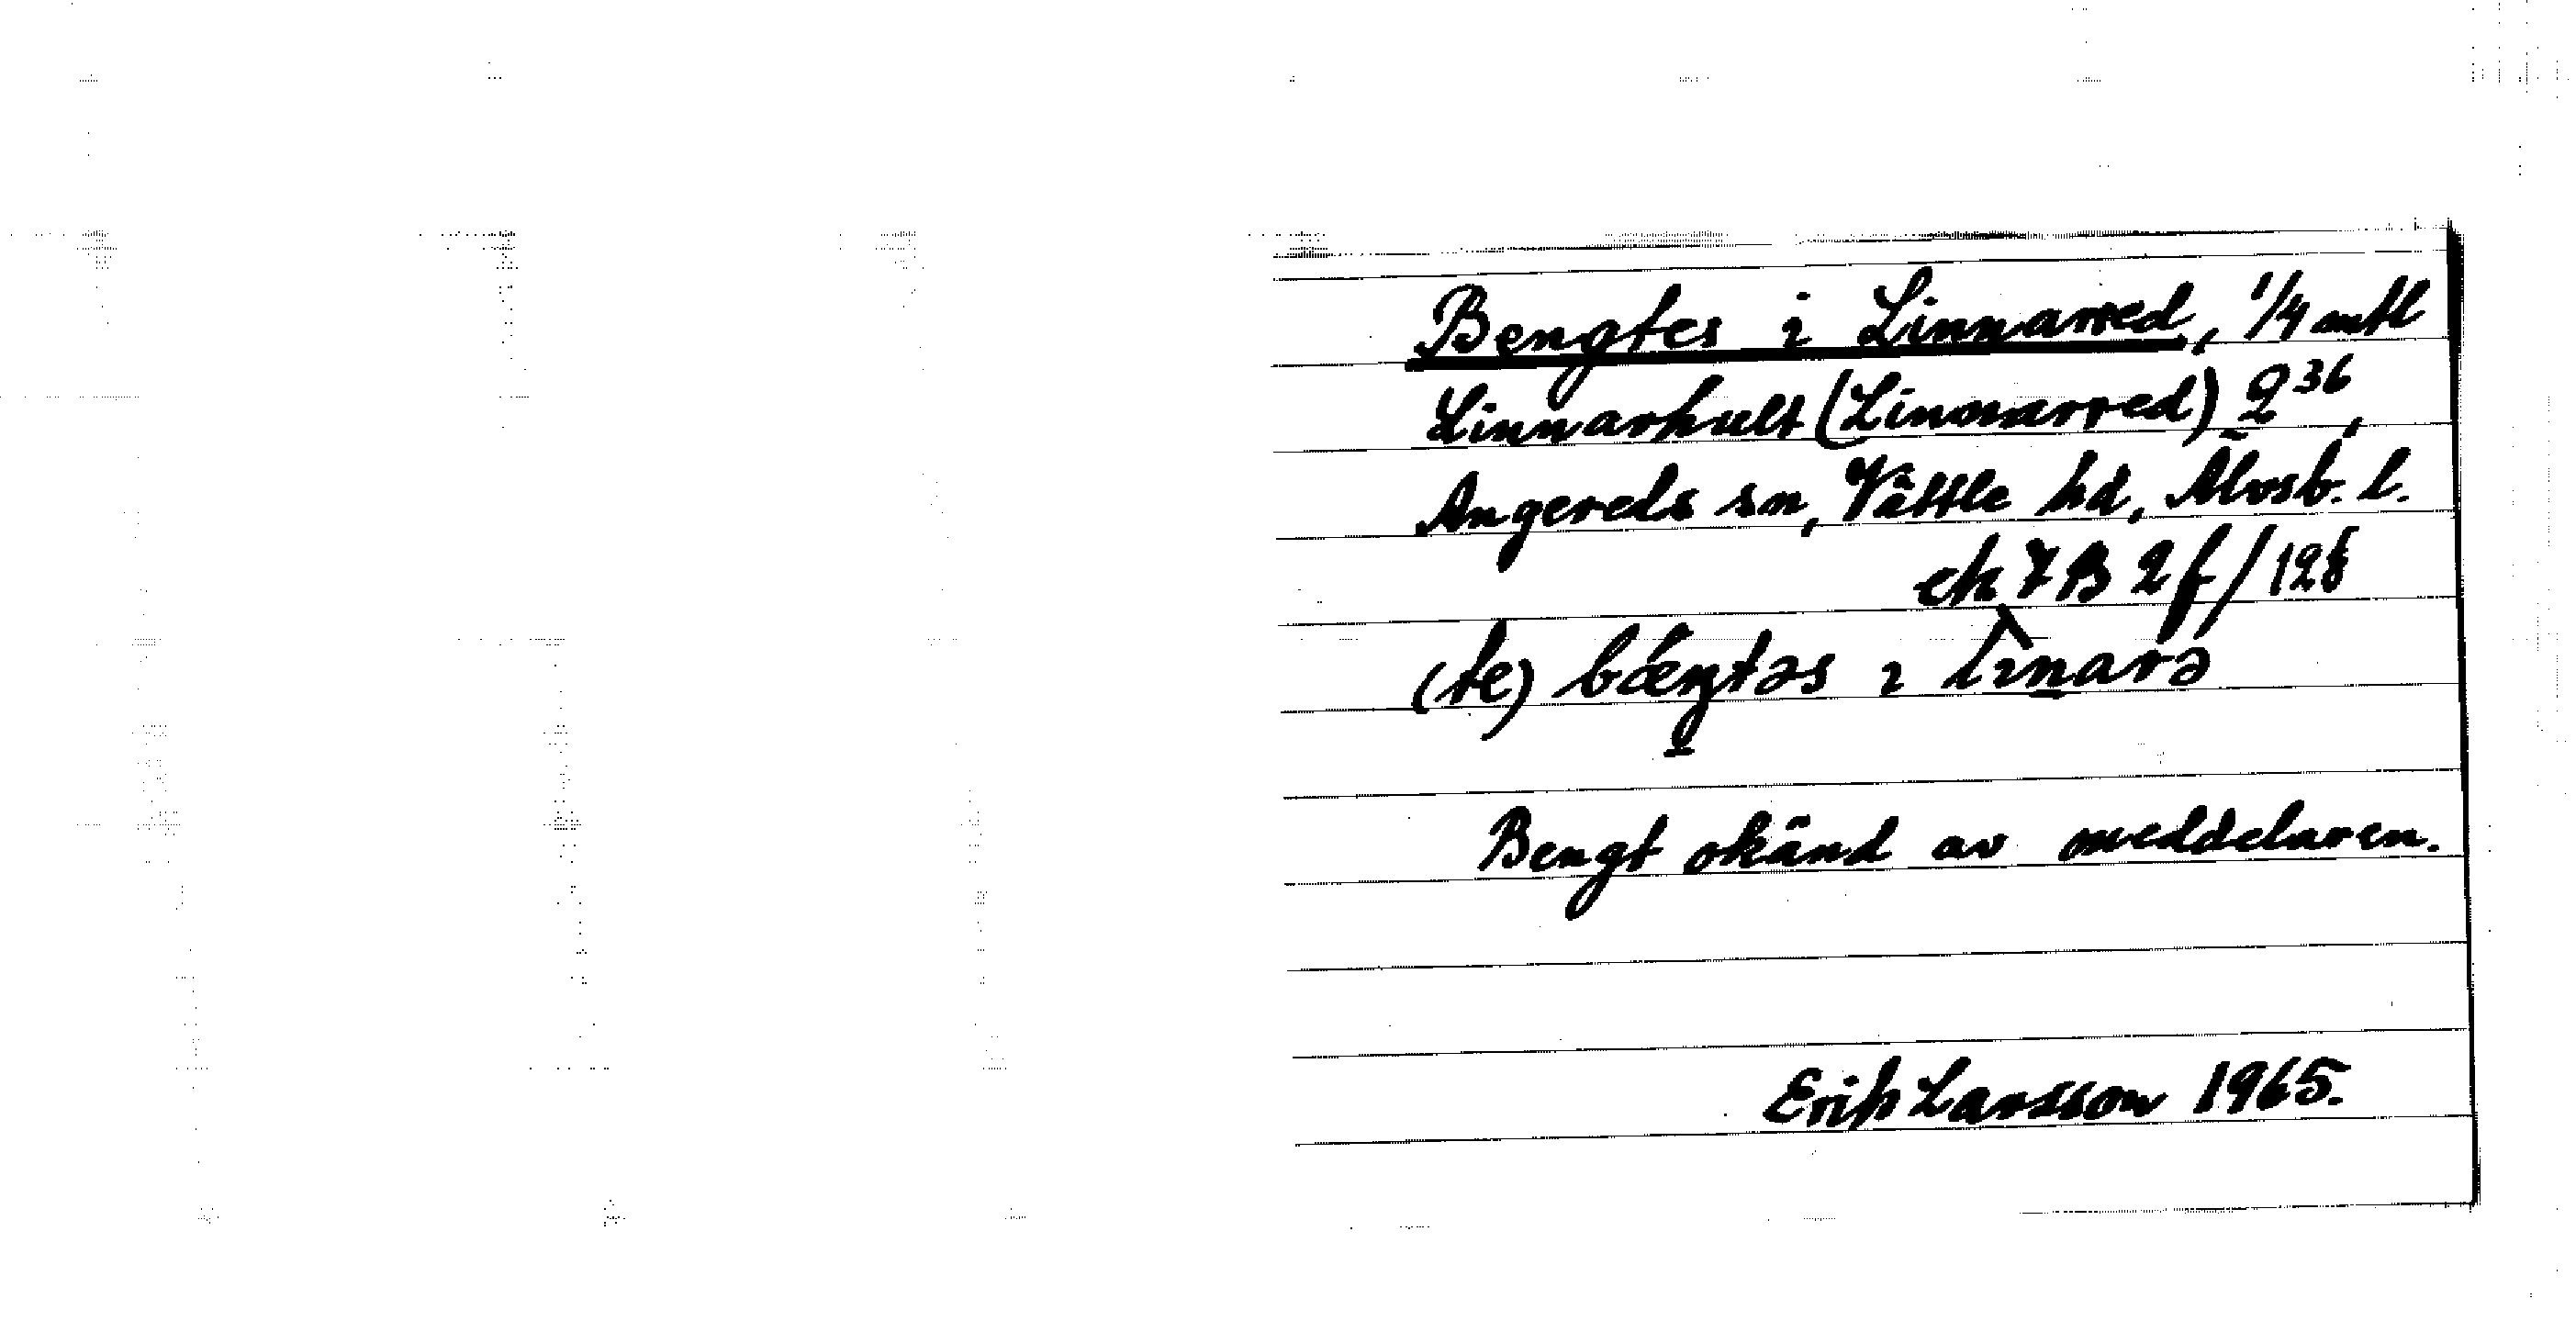 Bengtes i Linnarred, 1/4 mtl
Linnarhult (Linnarred) 2³⁶,
Angereds sn, Vättle hd, Älvsb. l.
ek 7B 2f/128
(te) bǽŋtəs ɩ lɩ̀narə
Bengt okänd av meddelaren.
Erik Larsson 1965.